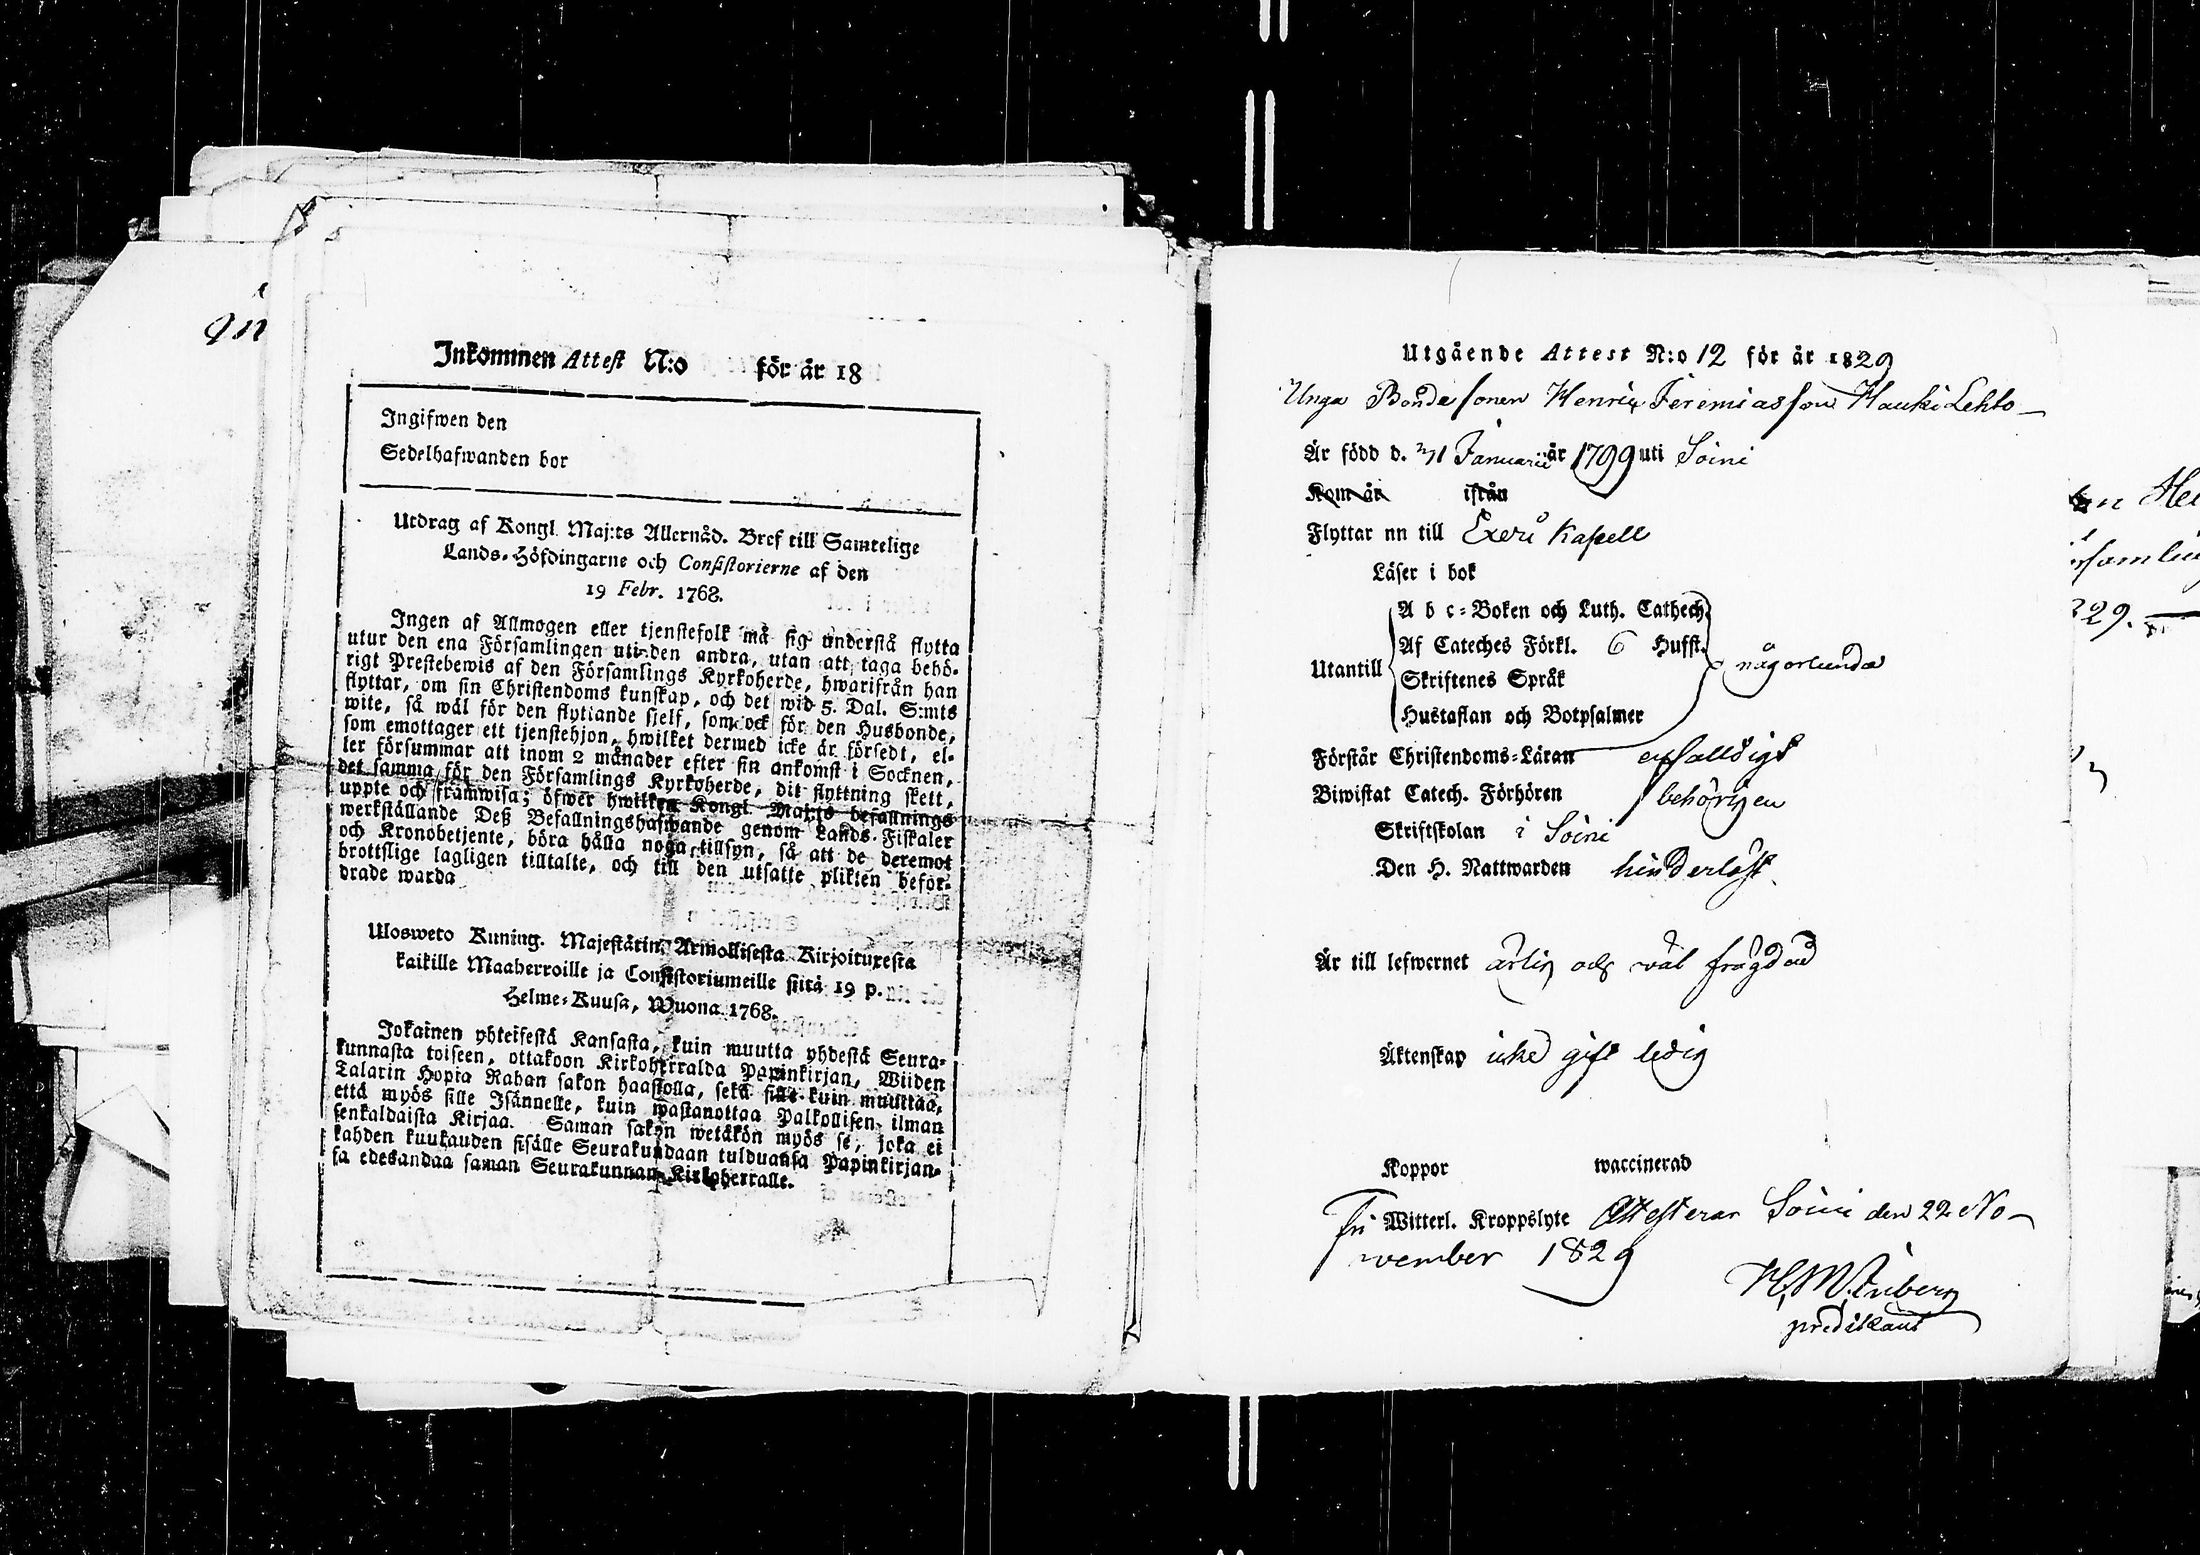 Inkommen Attest N:o för år 18
Ingifwen den
Sedelhafwanden bor
Utdrag af Kongl. Maj:ts Allernåd. Bref till Samtelige
Lands-Höfdingarne och Consistorierne af den
19 Febr. 1768.
Ingen af Allmogen eller tjenstefolk må sig understå flytta
utur den ena Församlingen uti den andra, utan att taga behö-
rigt Prestebewis af den Församlings Kyrkoherde, hwarifrån han
flyttar, om sin Christendoms kunskap, och det wid 5. Dal. S:mts
wite, så wäl för den flyttande sjelf, som ock för den Husbonde,
som emottager ett tjenstehjon, hwilket dermed icke är försedt, el-
ler försummar att inom 2 månader efter sin ankomst i Socknen,
det samma för den Församlings Kyrkoherde, dit flyttning skett,
uppte och framwisa; öfwer hwilken Kongl. Maj:ts befallnings
werkställande Deß Befallningshafwande genom Lands-Fiskaler
och Kronobetjente, böra hålla noga tillsyn, så att de deremot
brottslige lagligen tilltalte, och till den utsatte plikten beför-
drade warda
Ulosweto Kuning. Majestätin Armollisesta Kirjoituxesta
kaikille Maaherroille ja Consistoriumeille siitä 19 p.
Helme-Kuusa, Wuona 1768.
Jokainen yhteisestä Kansasta, kuin muutta yhdestä Seura-
kunnasta toiseen, ottakoon Kirkoherralda Papinkirjan, Wiiden
Talarin Hopia Rahan sakon haastolla, sekä sille kuin muuttaa,
että myös sille Isännelle, kuin wastanottaa Palkollisen ilman
senkaldaista Kirjaa. Saman sakon wetäkön myös se, joka ei
kahden kuukauden sisälle Seurakundaan tulduansa Papinkirjan-
sa edesandaa saman Seurakunnan Kirkoherralle.
Utgående Attest N:o 12 för år 1829
Unga Bondesonen Henric Jeremiasson Haukilehto
Är född d. 31 Januarii år 1799 uti Soini
Kom år ifrån
Flyttar nn till Kapell
Läser i bok
A b c-Boken och Luth. Cathech.
Af Cateches Förkl. 6 Hufst.
Utantill någorlunda
Skriftenes Språk
Hustaflan och Botpsalmer
Förstår Christendoms-Läran enfalldigt
Biwistat Catech. Förhören behörigen
Skriftskolan i Soini
Den H. Nattwarden hinderlöst
Är till lefwernet ärlig och wäl frägdad
Äktenskap icke gift ledig
Koppor waccinerad
fri Witterl. Kroppslyte Attesterar Soini den 22 No-
vember 1829
predikant